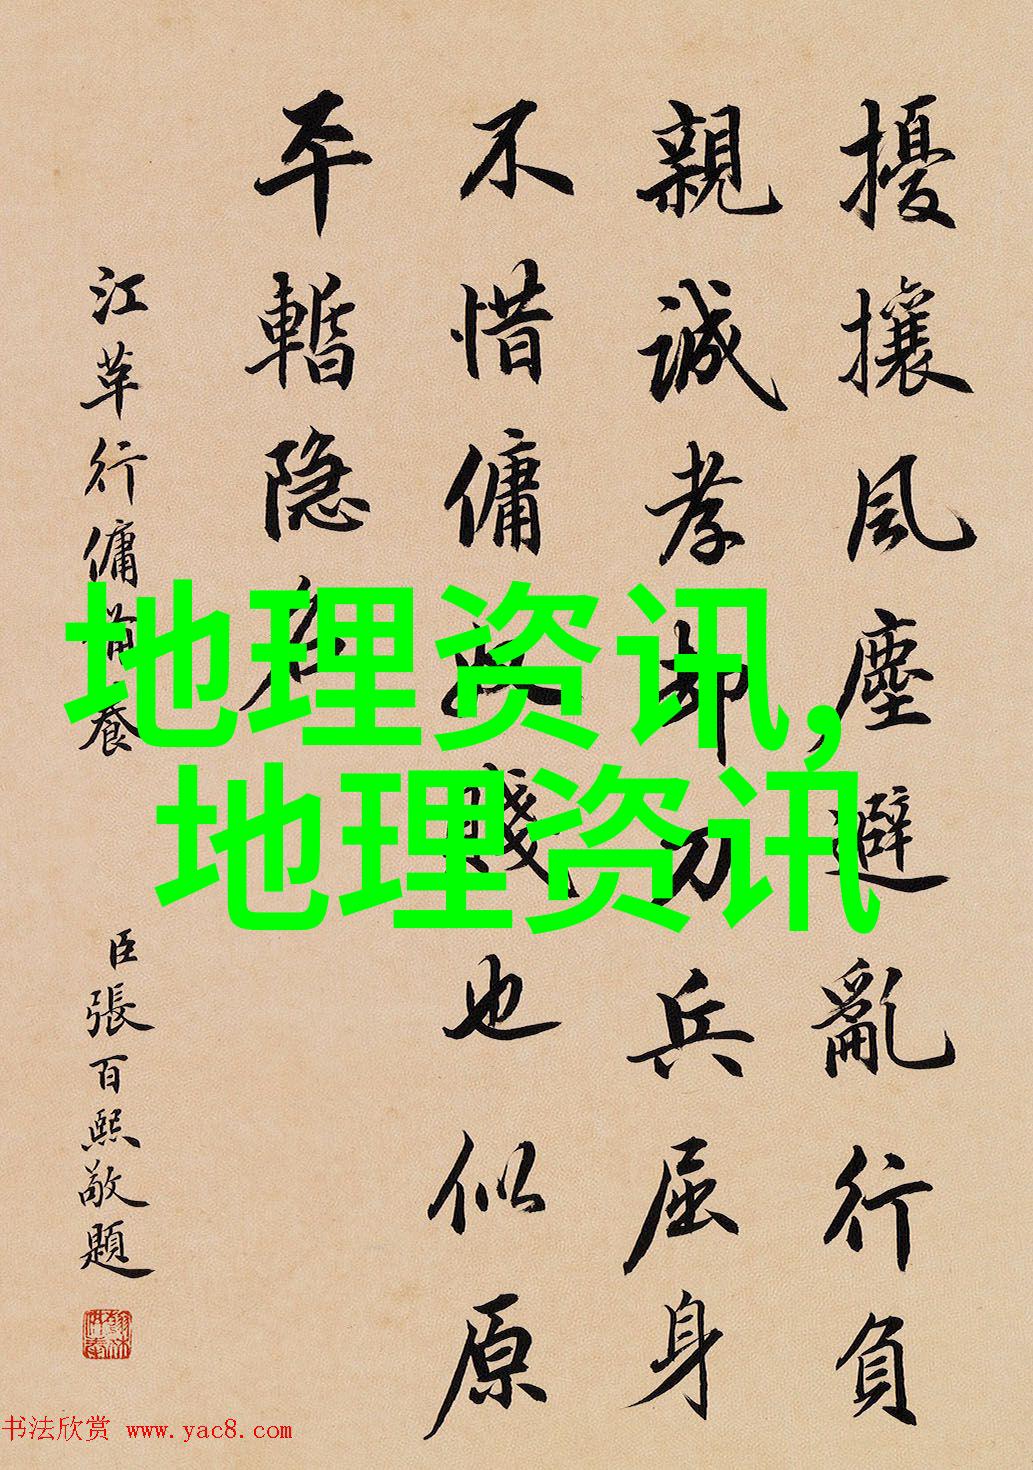 擾攘風塵避亂行負
親誠孝却刀兵屈身
不惜傭奴賤也似原
平暫隱名
江革行傭養
臣張百熙敬題
地理资讯,
地理资讯
书法欣赏 www.yac8.com